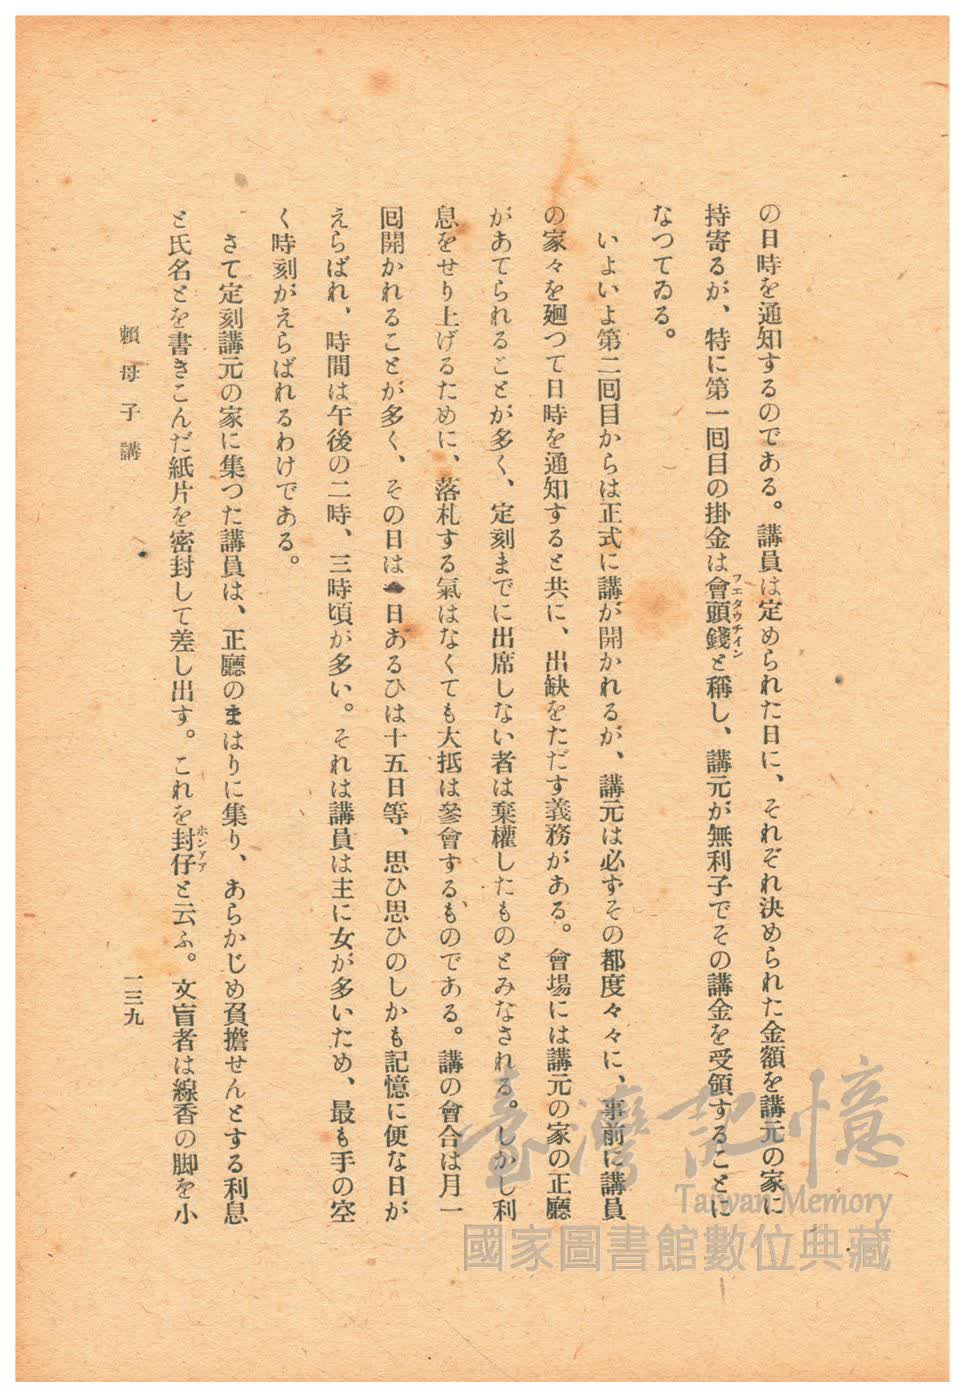 の日時を通知するのである。講員は定められた日に、それぞれ決められた金額を講元の家に
持寄るが、特に第一囘目の掛金は會頭錢と稱し、講元が無利子でその講金を受領することに
フエタウチイン
なつてゐる。
いよいよ第二囘目からは正式に講が開かれるが、講元は必ずその都度々々に、事前に講員
の家々を廻つて日時を通知すると共に、出缺をただす義務がある。會場には講元の家の正廳
があてられることが多く、定刻までに出席しない者は棄權したものとみなされる。しかし利
息をせり上げるために、落札する氣はなくても大抵は參會するものである。講の會合は月一
囘開かれることが多く、その日は一日あるひは十五日等、思ひ思ひのしかも記憶に便な日が
えらばれ、時間は午後の二時、三時頃が多い。それは講員は主に女が多いため、最も手の空
く時刻がえらばれるわけである。
さて定刻講元の家に集つた講員は、正廳のまはりに集り、あらかじめ負擔せんとする利息
と氏名とを書きこんだ紙片を密封して差し出す。これを封仔と云ふ。文盲者は線香の脚を小
ホンアア
賴母子講
一三九
臺灣記憶
Taiwan Memory
國家圖書館數位典藏